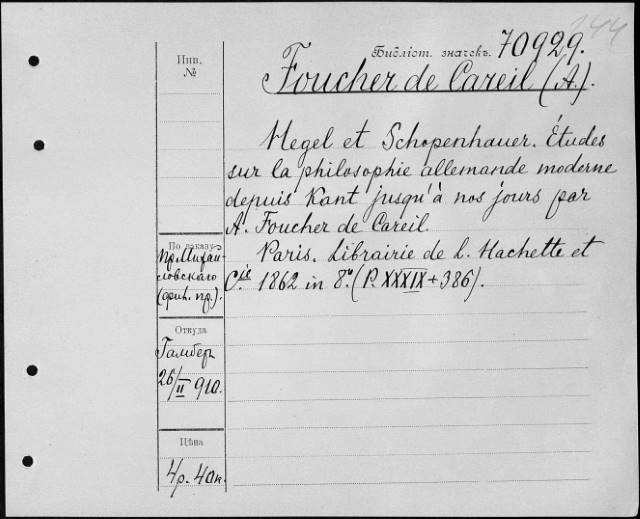 144
Библіот. значекъ. 70929.
Foucher de Careil (A.).
Инв.
№
Hegel et Schopenhauer. Études
sur la philosophie allemande moderne
depuis Kant jusqu'à nos jours par
A. Foucher de Careil.
Paris. Librairie de L. Hachette et
C.ie 1862 in 8°. (P. XXXIX + 386).
По заказу
пр. Михай-
ловскаго
Откуда
Гамбер
26/II 910.
Цѣна
4р. 40к.